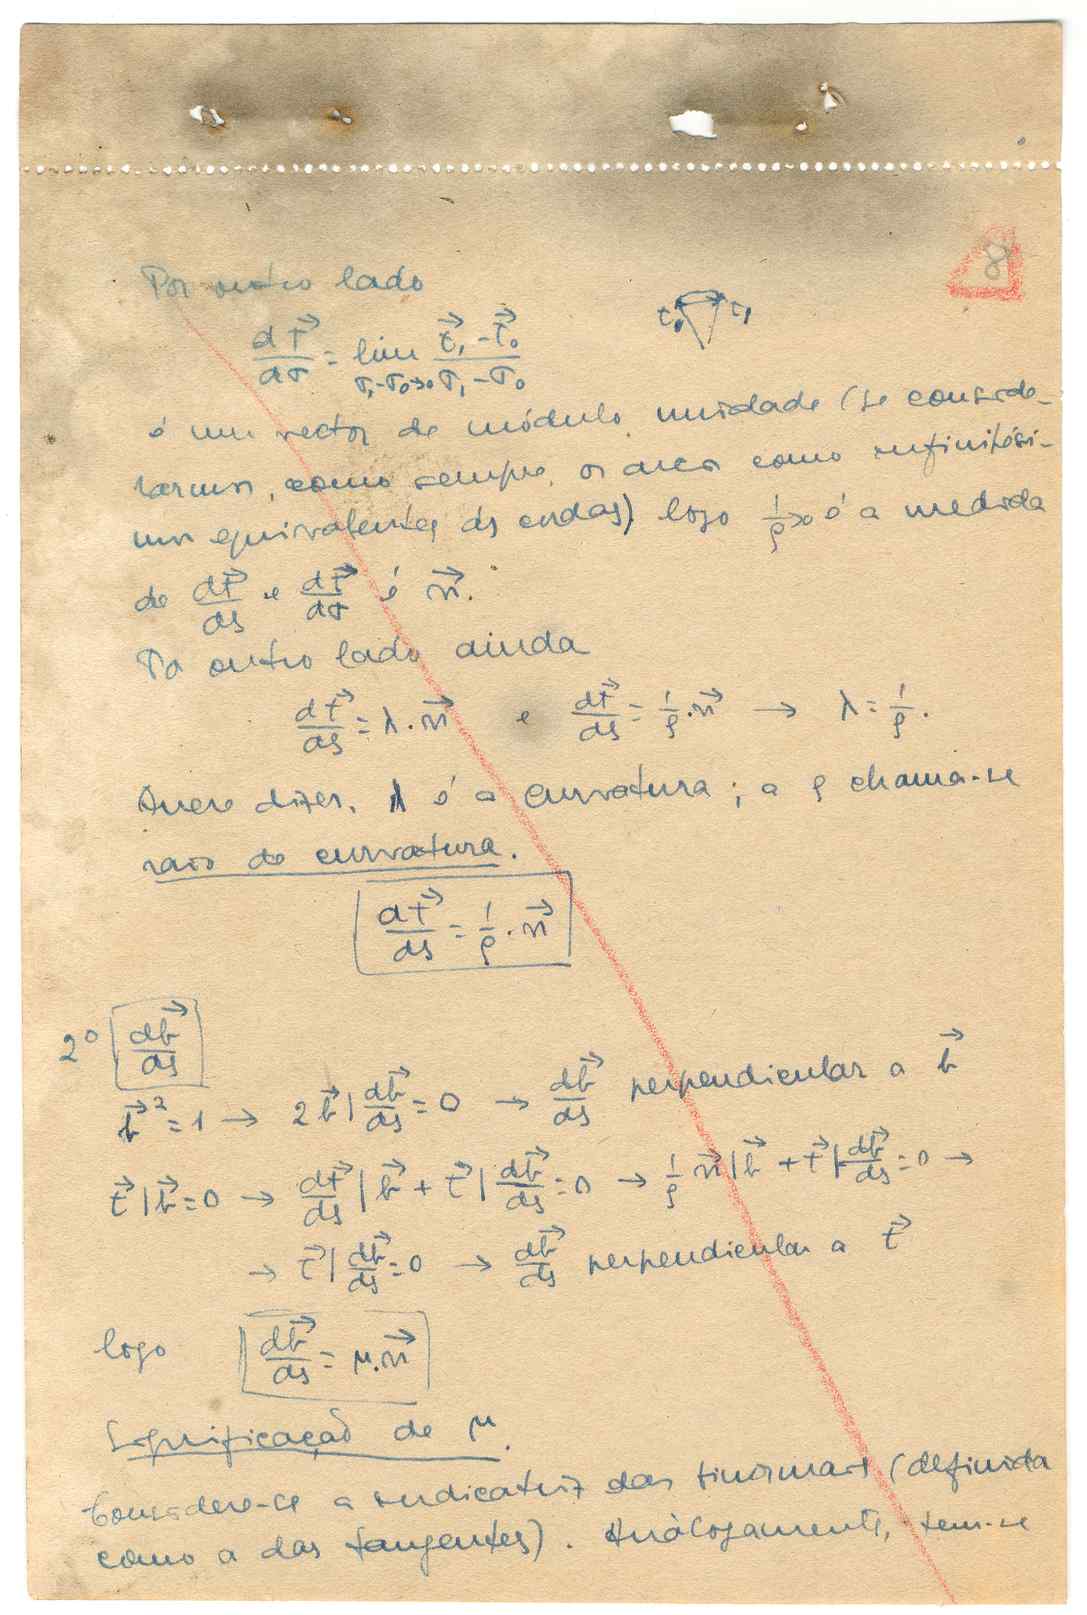 8
Por outro lado
t₀ t₁
d t⃗/dσ = lim σ₁-σ₀→0 (t⃗₁ - t⃗₀)/(σ₁ - σ₀)
é um vector de módulo unidade (se conside-
rarmos, como sempre, os arcos como infinitési-
mos equivalentes às cordas) logo 1/ρ >0 é a medida
de dt⃗/ds e dt⃗/dσ é n⃗.
Por outro lado ainda
dt⃗/ds = λ.n⃗ e dt⃗/ds = 1/ρ.n⃗ → λ = 1/ρ.
Quere dizer, λ é a curvatura; a ρ chama-se
raio de curvatura.
dt⃗/ds = 1/ρ . n⃗
2º db⃗/ds
b⃗² = 1 → 2b⃗ | db⃗/ds = 0 → db⃗/ds perpendicular a b⃗
t⃗ | b⃗ = 0 → dt⃗/ds | b⃗ + t⃗ | db⃗/ds = 0 → 1/ρ n⃗ | b⃗ + t⃗ | db⃗/ds = 0 →
→ t⃗ | db⃗/ds = 0 → db⃗/ds perpendicular a t⃗
logo db⃗/ds = μ.n⃗
Significação de μ.
Considere-se a indicatriz das binormais (definida
como a das tangentes). Anàlogamente, tem-se